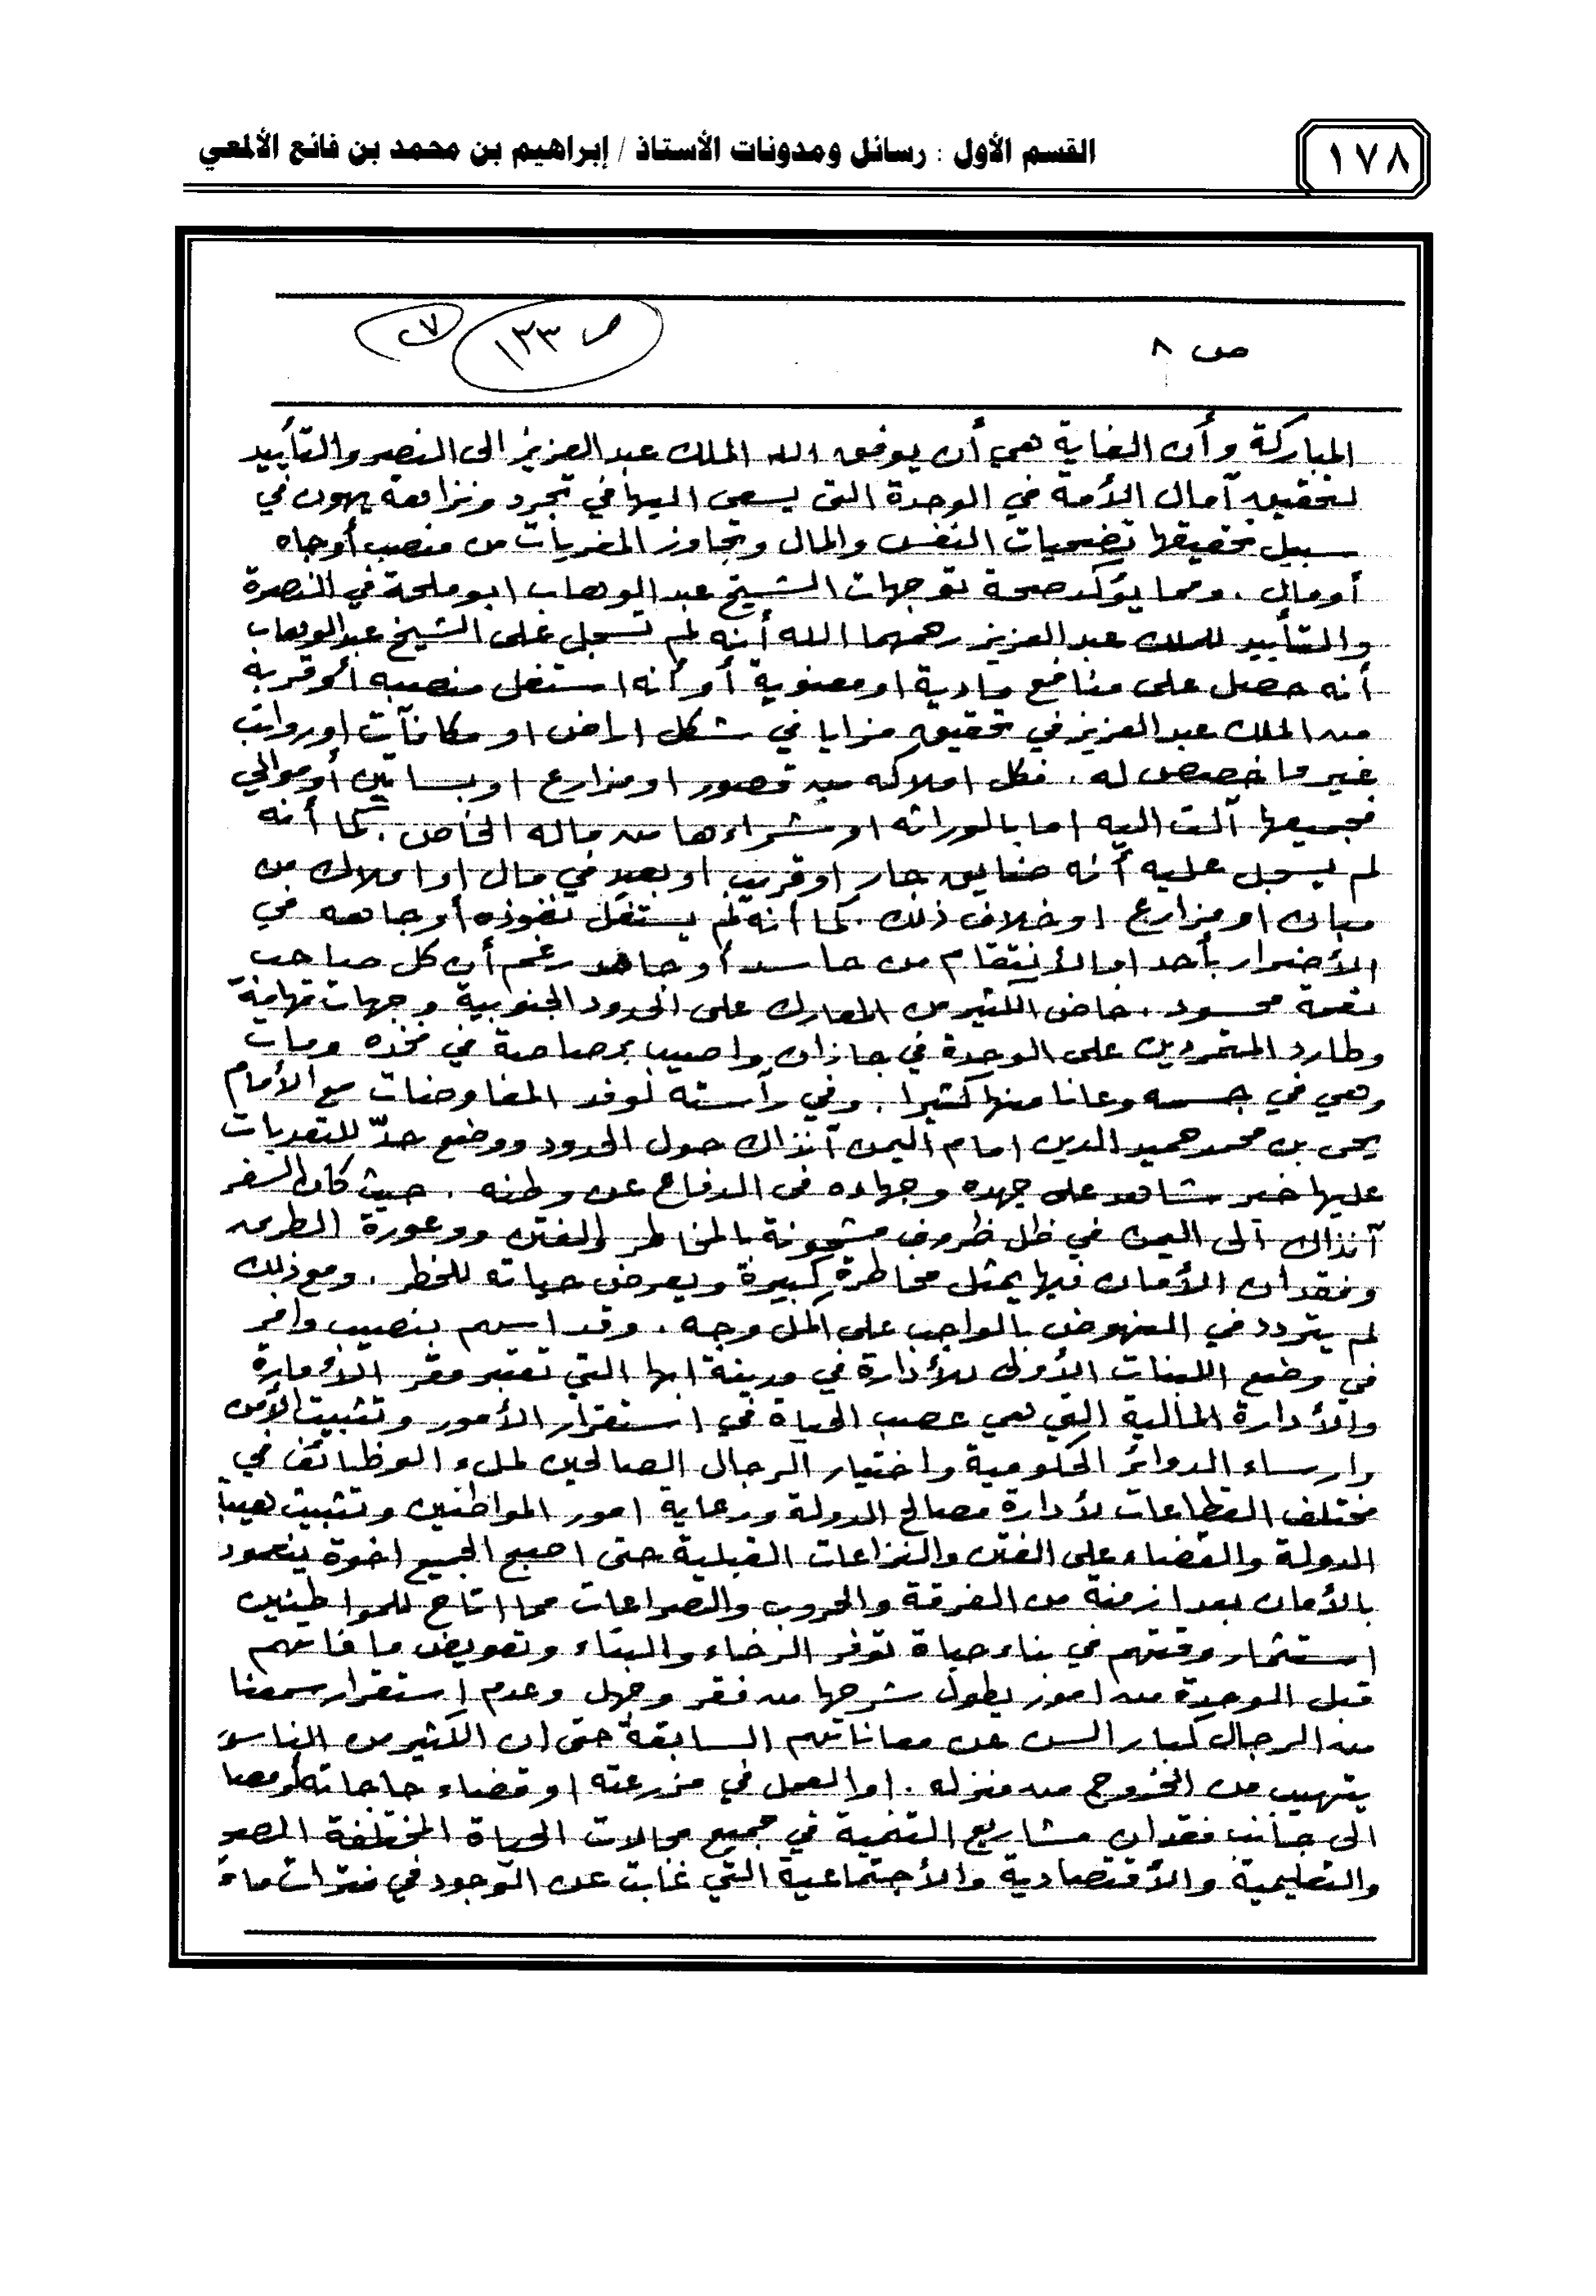 ١٧٨
القسم الأول : رسائل ومدونات الأستاذ / إبراهيم بن محمد بن فائع الألمعي
ص ٨
ص ١٣٣
٢٧
المباركة وأن الغاية هي أن يوفق الله الملك عبد العزيز الى النصر والتأييد
لتحقيق آمال الأمة في الوحدة التى يسعى اليها في تجرد ونزاهة يهون في
سبيل تحقيقها تضحيات النفس والمال وتجاوز المغريات من منصب أوجاه
أومال . ومما يؤكد صحة توجهات الشيخ عبد الوهاب ابوملحة في النصرة
والتأييد للملك عبد العزيز رحمهما الله أنه لم تسجل على الشيخ عبد الوهاب
أنه حصل على منافع مادية او معنوية أو أنه استغل منصبه أو قربه
من الملك عبد العزيز في تحقيق مزايا في شكل اراض او مكافآت اورواتب
غير ما خصص له . فكل املاكه من قصور او مزارع او بساتين أو موالي
فجميعها آلت اليه اما بالوراثه او شراءها من ماله الخاص . كما أنه
لم يسجل عليه أنه ضايق جار او قريب او بعيد في مال او املاك من
مبان او مزارع او خلاف ذلك . كما أنه لم يستغل نفوذه أو جاهه في
الأضرار بأحد او الأنتقام من حاسد أو جاهد رغم أن كل صاحب
نعمة محسود . خاض الكثير من المعارك على الحدود الجنوبية وجهات تهامة
وطارد المتمردين على الوحدة في جازان واصيب برصاصة في فخذه ومات
وهي في جسمه وعانا منها كثيرا . وفي رآسته لوفد المفاوضات مع الأمام
يحى بن محمد حميد الدين امام اليمن آنذاك حول الحدود ووضع حدّ للتعديات
عليها خير شاهد على جهده وجهاده فى الدفاع عن وطنه . حيث كان السفر
آنذاك الى اليمن في ظل ظروف مشحونة بالمخاطر والفتن ووعورة الطريق
وفقدان الأمان فيها يمثل مخاطرة كبيرة ويعرض حياته للخطر . ومع ذلك
لم يتردد في النهوض بالواجب على اكمل وجه . وقد اسهم بنصيب وافر
في وضع اللبنات الأولى للأدارة في مدينة ابها التي تعتبر مقر الأمارة
والأدارة المالية التي هي عصب الحياة في استقرار الأمور وتثبيت الأمن
وارساء الدوائر الحكومية واختيار الرجال الصالحين لملء الوظائف في
مختلف القطاعات لأدارة مصالح الدولة ورعاية امور المواطنين وتثبيت هيبة
الدولة والقضاء على الفتن والنزاعات القبلية حتى اصبح الجميع اخوة ينعمون
بالأمان بعد ازمنة من الفرقة والحروب والصراعات مما اتاح للمواطنين
استثمار وقتهم في بناء حياة توفر الرخاء والبناء وتعويض ما فاتهم
قبل الوحدة من امور يطول شرحها من فقر وجهل وعدم إستقرار سمعنا
من الرجال كبار السن عن معاناتهم السابقة حتى ان الكثير من الناس
يتهيب من الخروج من منزله . او العمل في مزرعته او قضاء حاجاته
الى جانب فقدان مشاريع التنمية في جميع مجالات الحياة المختلفة
والتعليمية والأقتصادية والأجتماعية التي غابت عن الوجود في فترات